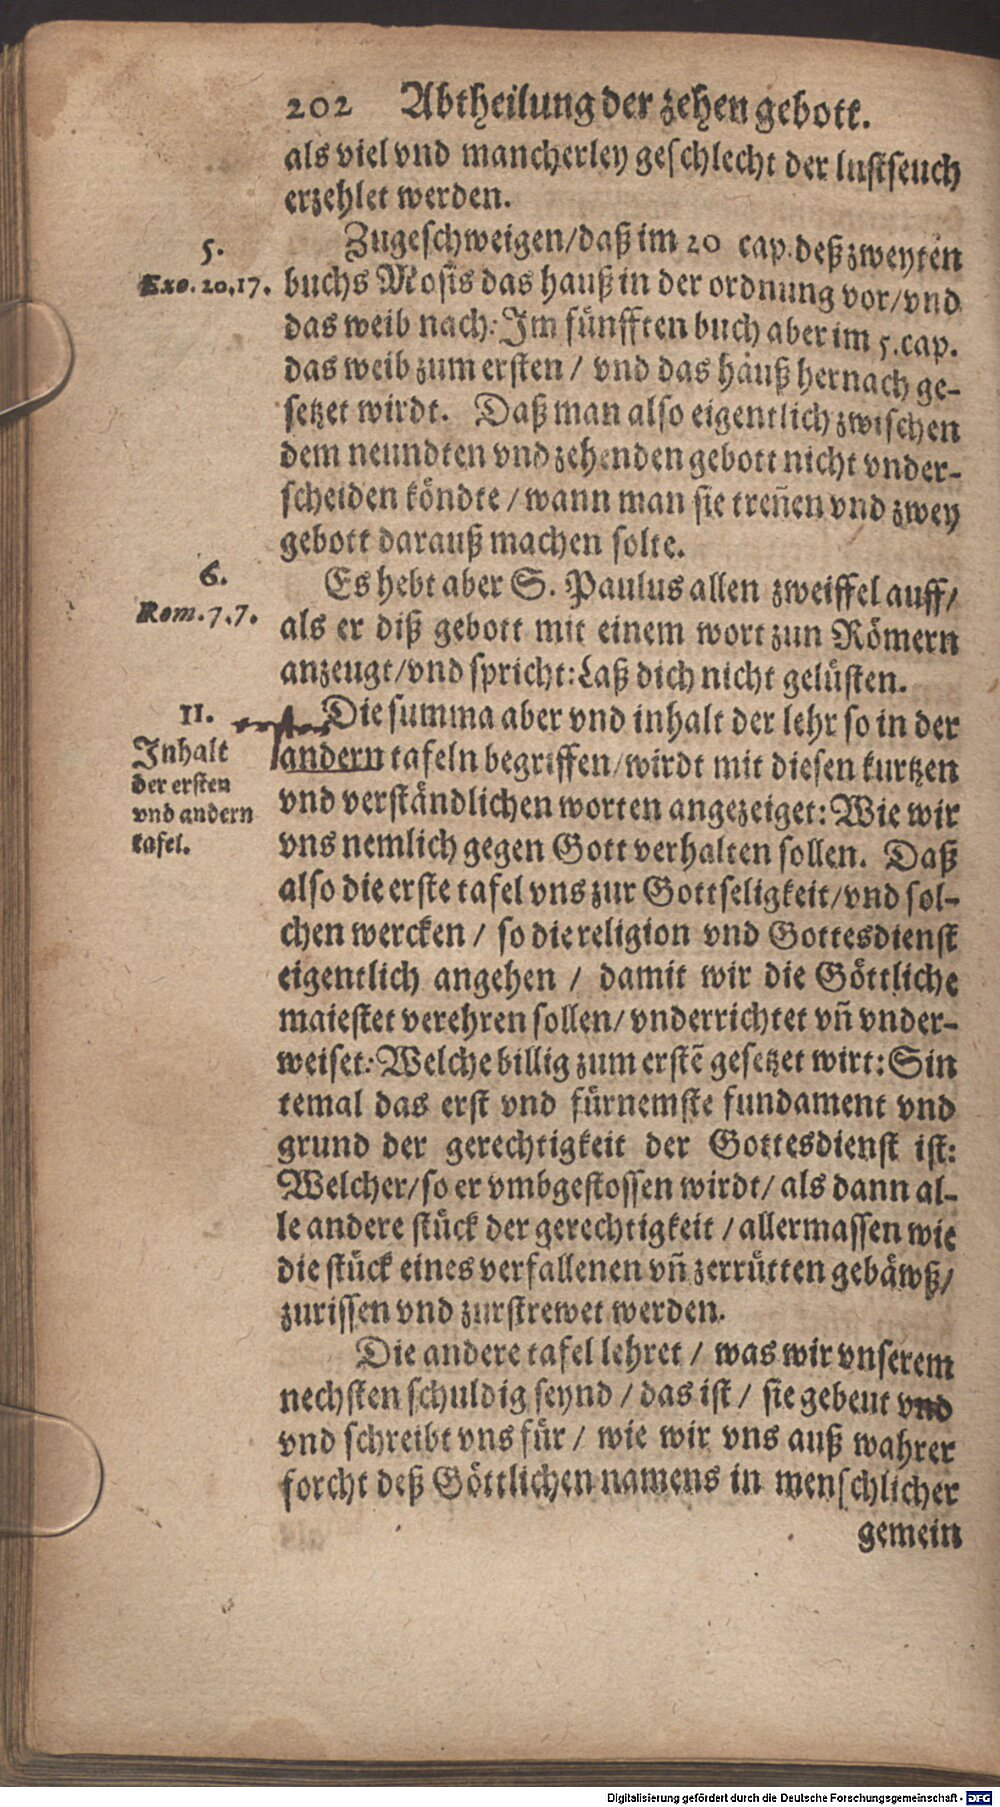 202 Abtheilung der zehen gebott.
als viel vnd mancherley geschlecht der lustseuch
erzehlet werden.
5.
Exo. 20.17.
Zugeschweigen/daß im 20 cap. deß zweyten
buchs Mosis das hauß in der ordnung vor/vnd
das weib nach: Im fünfften buch aber im 5. cap.
das weib zum ersten / vnd das hauß hernach ge-
setzet wirdt. Daß man also eigentlich zwischen
dem neundten vnd zehenden gebott nicht vnder-
scheiden köndte / wann man sie treñen vnd zwey
gebott darauß machen solte.
6.
Rom. 7.7.
Es hebt aber S. Paulus allen zweiffel auff/
als er diß gebott mit einem wort zun Römern
anzeugt/vnd spricht: Laß dich nicht gelüsten.
II.
Inhalt
der ersten
vnd andern
tafel.
ersten
Die summa aber vnd inhalt der lehr so in der
andern tafeln begriffen/wirdt mit diesen kurtzen
vnd verständlichen worten angezeiget: Wie wir
vns nemlich gegen Gott verhalten sollen. Daß
also die erste tafel vns zur Gottseligkeit/vnd sol-
chen wercken / so die religion vnd Gottesdienst
eigentlich angehen / damit wir die Göttliche
maiestet verehren sollen/ vnderrichtet vñ vnder-
weiset: Welche billig zum erstẽ gesetzet wirt: Sin
temal das erst vnd fürnemste fundament vnd
grund der gerechtigkeit der Gottesdienst ist:
Welcher/ so er vmbgestossen wirdt/ als dann al-
le andere stück der gerechtigkeit / allermassen wie
die stück eines verfallenen vñ zerrütten gebäwß/
zurissen vnd zurstrewet werden.
Die andere tafel lehret / was wir vnserem
nechsten schuldig seynd / das ist / sie gebeut vnd
vnd schreibt vns für / wie wir vns auß wahrer
forcht deß Göttlichen namens in menschlicher
gemein
Digitalisierung gefördert durch die Deutsche Forschungsgemeinschaft - DFG